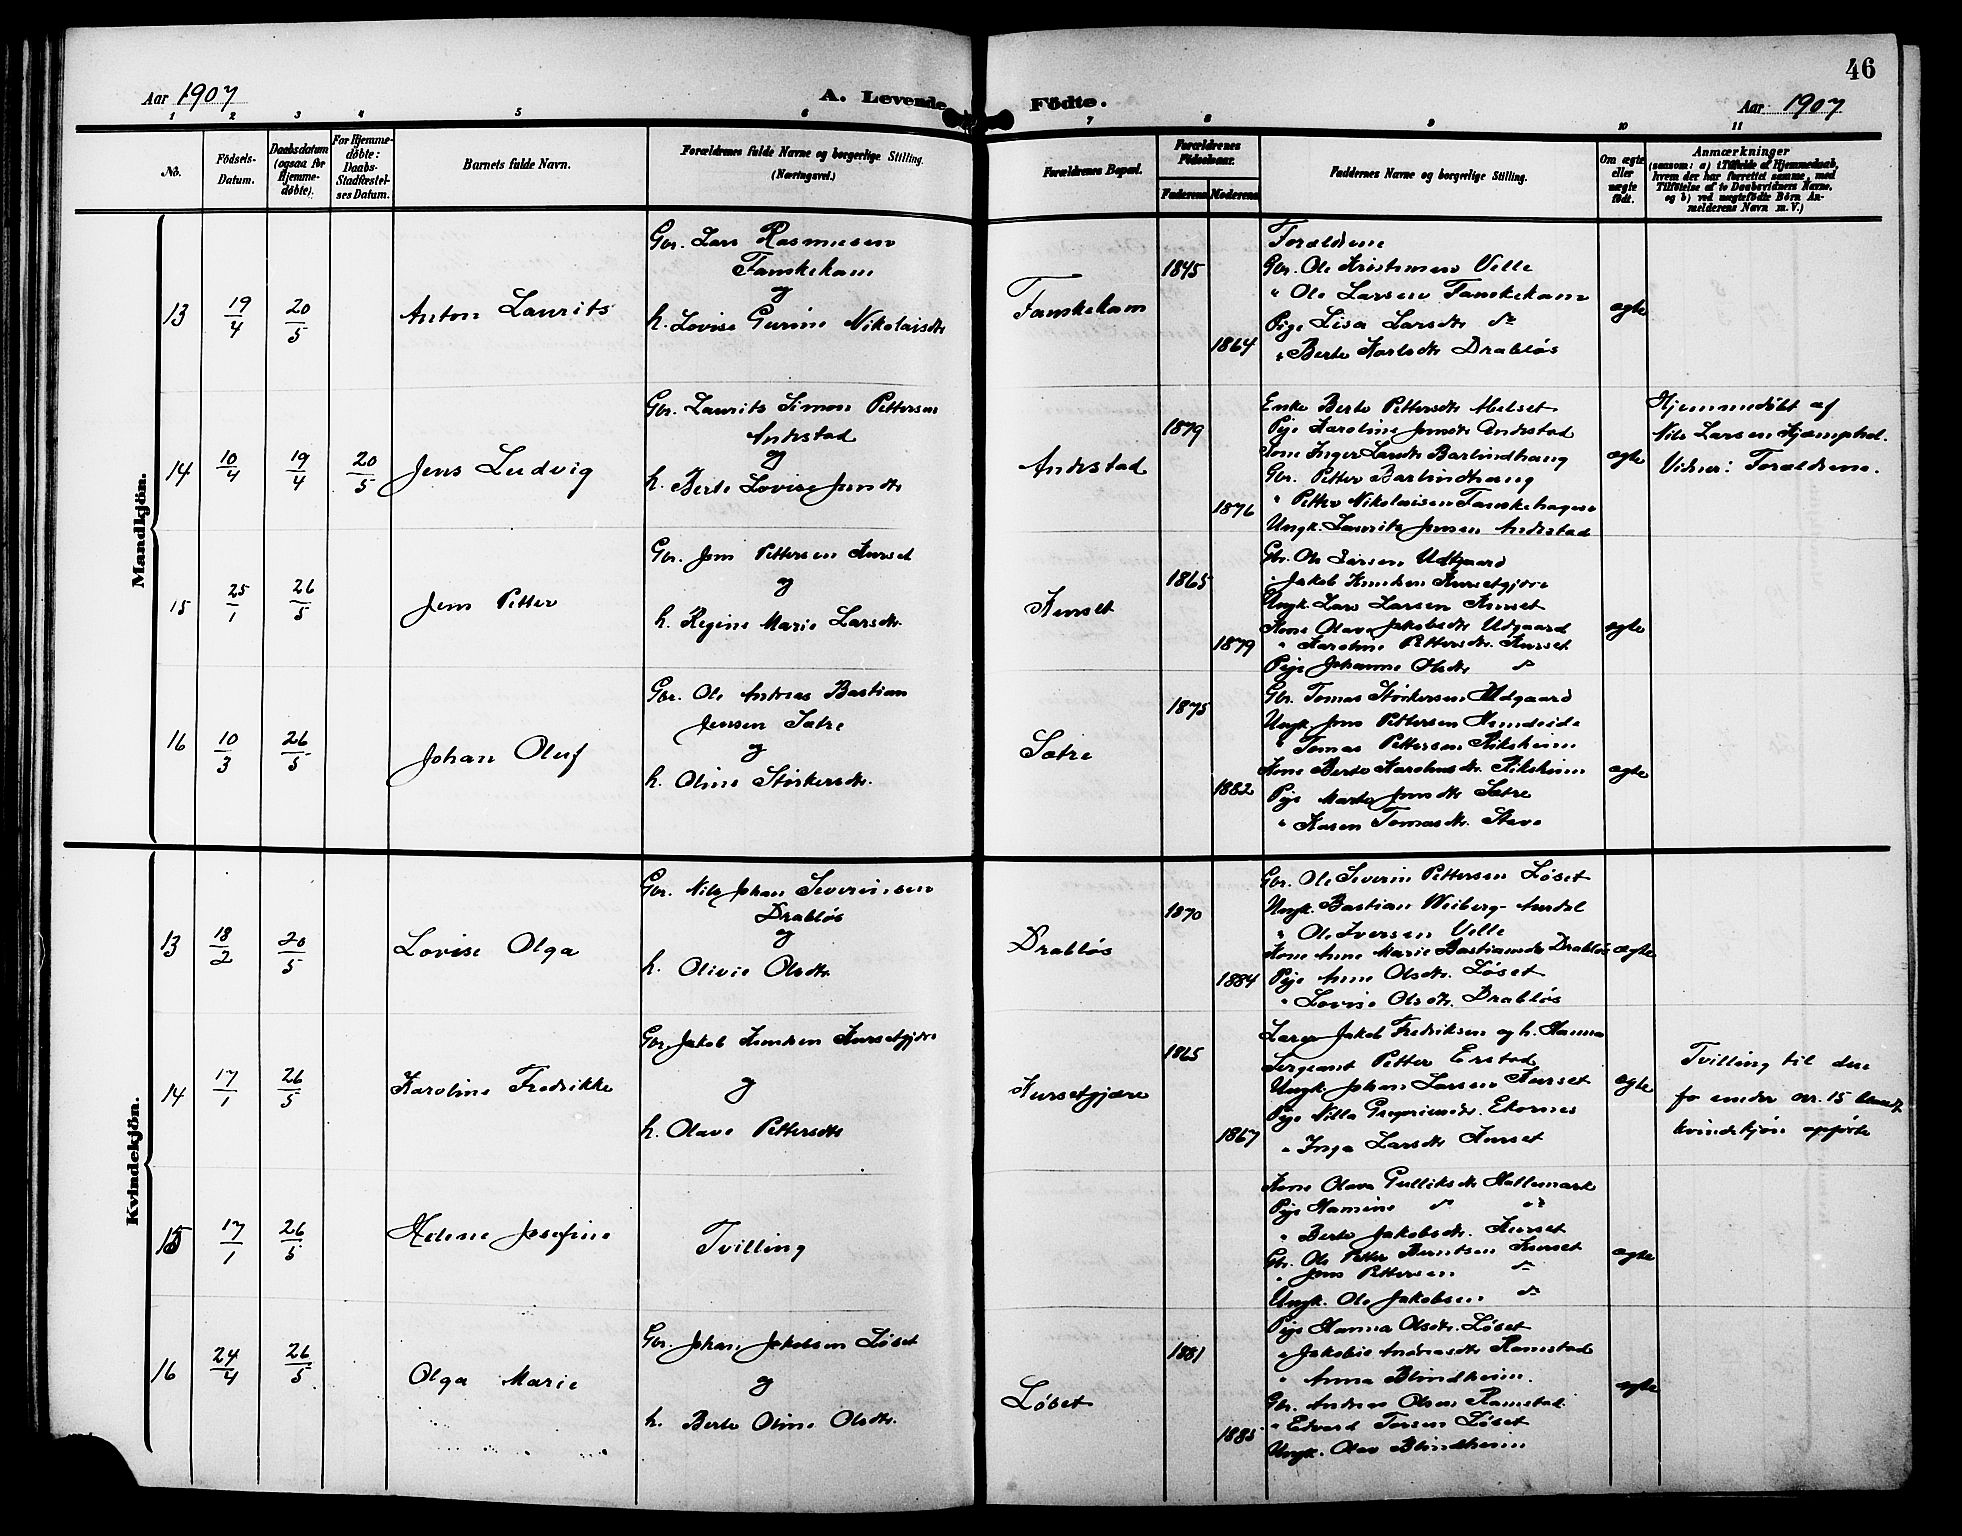 46
Aar 1907
A. Levende Födte.
Aar 1907
1 2 3 4 5 6 7 8 9 10 11
No.
Födsels-Datum.
Daabsdatum (ogsaa for Hjemme-döbte).
For Hjemme-döbte: Daabs-Stadfæstel-ses Datum.
Barnets fulde Navn.
Forældrenes fulde Navne og borgerlige Stilling.
(Næringsvei.)
Forældrenes Bopæl.
Forældrenes Födselsaar.
Faderens Moderens
Faddernes Navne og borgerlige Stilling.
Om ægte eller uægte födt.
Anmærkninger
(saasom: a) i Tilfælde af Hjemmedaab, hvem der har forrettet samme, med Tilföielse af to Daabsvidners Navne, og b) ved uægtefödte Börn An-melderens Navn m. V.)
Mandkjön.
13 19/4 20/5
Anton Laurits
Gbr. Lars Rasmusen
Famskekam
og
h. Lovise Gurine Nikolaisdtr
Famskekam
1845
1864
Forældrene
Gbr. Ole Kristensen Velle
" Ole Larsen Famskekam
Pige Lisa Larsdtr do
" Berte Karlsdtr Drabløs
egte
14 10/4 19/4 20/5
Jens Ludvig
Gbr. Laurits Simon Pettersen
Andestad
og
h. Berte Lovise Jensdtr
Andestad
1879
1876
Enke Berte Pettersdtr Melset
Pige Karoline Jensdtr Andestad
Kone Inger Larsdtr Barlindhaug
Gbr. Petter Barlindhaug
" Petter Nikolaisen Famskehagen
Ungk. Laurits Jensen Andestad
egte
Hjemmedøbt af
Nils Larsen Kjemphol.
Vidner: Forældrene.
15 25/1 26/5
Jens Petter
Gbr. Jens Pettersen Kurset
og
h. Regine Marie Larsdtr.
Kurset
1865
1879
Gbr. Ole Larsen Udgaard
" Jakob Knudsen Kursetgjære
Ungk. Lars Larsen Kurset
Kone Olave Jakobsdtr Udgaard
" Karoline Pettersdtr. Kurset
Pige Johanne Olsdtr do
egte
16 10/3 26/5
Johan Oluf
Gbr. Ole Andreas Bastian
Jensen Sætre
og
h. Oline Størkersdtr.
Sætre
1875
1882
Gbr. Tomas Størkersen Udgaard
Ungk. Jens Pettersen Hundeide
" Tomas Pettersen Riksheim
Kone Berte Karolusdtr. Riksheim
Pige Marte Jensdtr Sætre
" Karen Tomasdtr. Steve
egte
Kvindekjön.
13 18/2 20/5
Lovise Olga
Gbr. Nils Johan Severinsen
Drabløs
og
h. Olivie Olsdtr
Drabløs
1870
1884
Gbr. Ole Severin Pettersen Løset
Ungk. Bastian Weiberg-Aurdal
" Ole Iversen Velle
Kone Anne Marie Bastiansdtr Drabløs
Pige Anne Olsdtr. Løset
" Lovise Olsdtr. Drabløs
ægte
14 17/1 26/5
Karoline Fredrikke
Gbr. Jakob Knudsen Kursetgjære
og
h. Olave Pettersdtr
Kursetgjære
1865
1867
Lærer Jakob Fredriksen og h. Hanna
Sergeant Petter Erstad
Ungk. Johan Larsen Kurset
Pige Nilla Gregoriusdtr. Ekornes
" Inga Larsdtr Kurset
egte
Tvilling til den
under nr. 15 blandt
kvindekjøn opførte
15 17/1 26/5
Helene Josefine
Tvilling
Kone Olava Gulliksdtr Hattemark
Pige Hamine do do
" Berte Jakobsdtr. Kurset
Gbr. Ole Petter Berntsen Kurset
" Jens Pettersen do
Ungk. Ole Jakobsen do
egte
16 24/4 26/5
Olga Marie
Gbr. Johan Jakobsen Løset
og
h. Berte Oline Olsdtr.
Løset
1881
1885
Pige Hanna Olsdtr. Løset
" Jakobie Andreasdtr Ramstad
" Anna Blindheim.
Gbr. Andreas Olsen Ramstad
" Edvard Torsen Løset
Ungk. Olav Blindheim
egte